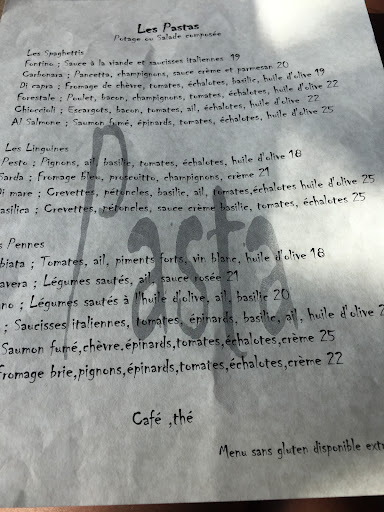 Les Pastas
Potage ou Salade composée
Les Spaghettis
Fontino ; Sauce à la viande et saucisses italiennes 19
Carbonara ; Pancetta, champignons, sauce crème et parmesan 20
Di capra ; Fromage de chèvre, tomates, échalotes, basilic, huile d'olive 19
Forestale ; Poulet, bacon, champignons, tomates, échalotes, huile d'olive 22
Chioccioli ; Escargots, bacon, tomates, ail, échalotes, huile d'olive 22
Al Salmone ; Saumon fumé, épinards, tomates, échalotes, huile d'olive 25
Les Linguines
Pesto ; Pignons, ail, basilic, tomates, échalotes, huile d'olive 18
Sarda ; Fromage bleu, proscuitto, champignons, crème 21
Di mare ; Crevettes, pétoncles, basilic, ail, tomates,échalotes huile d'olive 25
asilica ; Crevettes, pétoncles, sauce crème basilic, tomates, échalotes 25
s Pennes
biata ; Tomates, ail, piments forts, vin blanc, huile d'olive 18
avera ; Légumes sautés, ail, sauce rosée 21
no ; Légumes sautés à l'huile d'olive, ail, basilic 20
; Saucisses italiennes, tomates, épinards, basilic, ail, huile d'olive 2
Saumon fumé,chèvre.épinards,tomates,échalotes,crème 25
Fromage brie,pignons,épinards,tomates,échalotes,crème 22
Café ,thé
Menu sans gluten disponible extr
Pasta